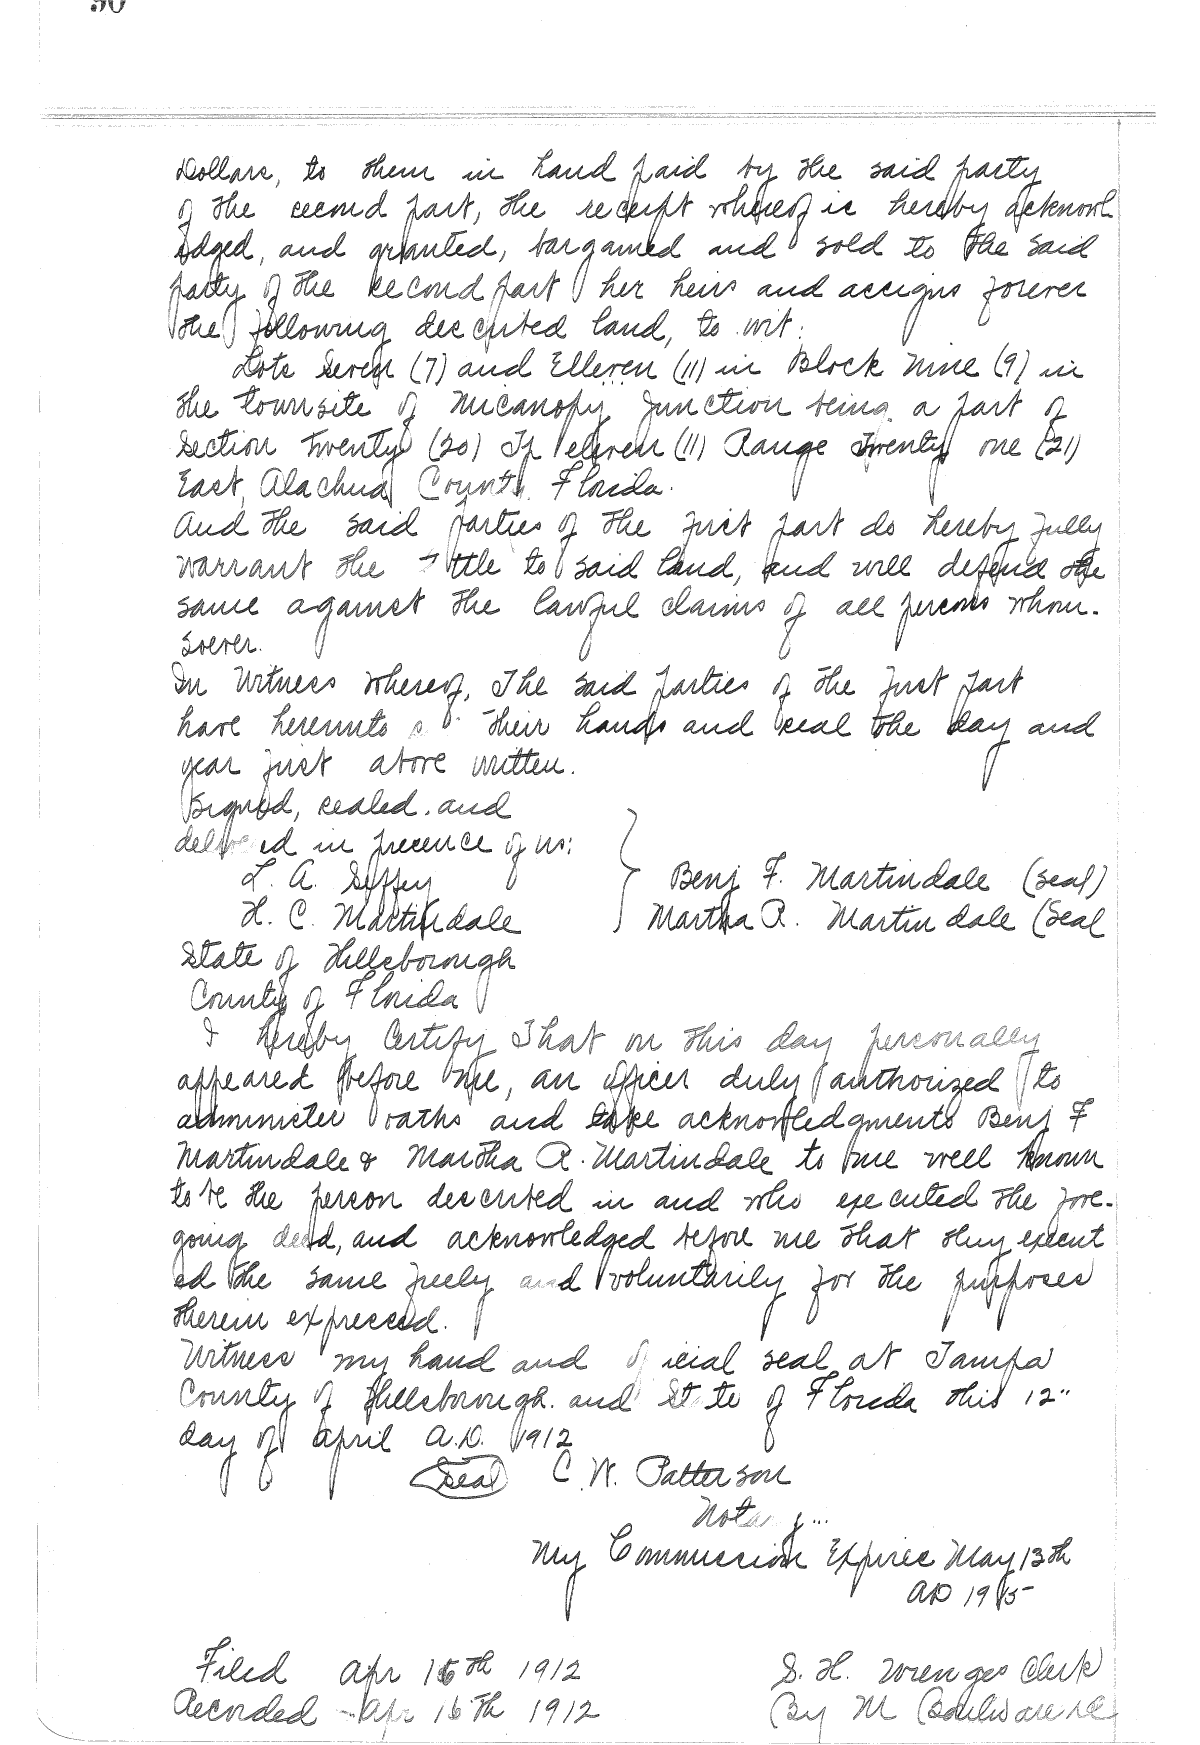 Dollars, to them in hand paid by the said party
of the second part, the receipt whereof is hereby acknowl
edged, and granted, bargained and sold to the said
party of the second part her heirs and assigns forever
the following described land, to wit:
Lots Seven (7) and Elleven (11) in Block Nine (9) in
the townsite of Micanopy Junction being a part of
Section Twenty (20) Tp eleven (11) Range Twenty one (21)
East, Alachua County Florida.
And the said parties of the first part do hereby fully
warrant the title to said land, and will defend the
same against the lawful claims of all persons whom-
soever.
In Witness whereof, The said parties of the first part
have hereunto their hands and seal the day and
year first above written.
Signed, sealed and
delivered in presence of us:
L. A.
H. C. Martindale
Benj F. Martindale (seal)
Martha R. Martindale (Seal
State of Hillsborough
County of Florida
I hereby Certify That on this day personally
appeared before me, an officer duly authorized to
administer oaths and take acknowledgments Benj F
Martindale & Martha R. Martindale to me well known
to be the person described in and who executed the fore-
going deed, and acknowledged before me that they execut
ed the same freely and voluntarily for the purposes
therein expressed.
Witness my hand and official seal at Tampa
County of Hillsborough and State of Florida this 12"
day of April A.D. 1912
(Seal) C. W. Patterson
Notary
My Commission Expires May 13th
AD 1915
Filed Apr 15th 1912
Recorded Apr 16th 1912
S. H. Wienges Clerk
By M Boulware D.C.